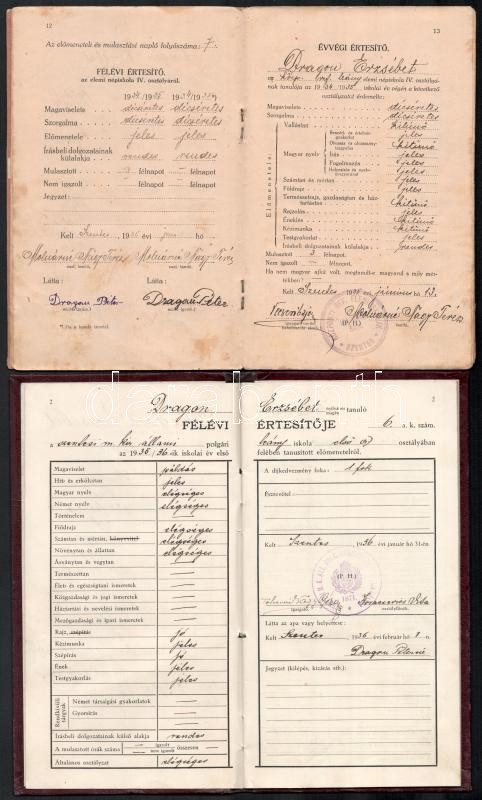 12
Az előmeneteli és mulasztási napló folyószáma: 7.
FÉLÉVI ÉRTESÍTŐ.
az elemi népiskola IV. osztályáról.
1934/1935 1934/35
Magaviselete dicséretes dicséretes
Szorgalma dicséretes dicséretes
Előmenetele jeles jeles
Írásbeli dolgozatainak
külalakja rendes rendes
Mulasztott 3 félnapot — félnapot
Nem igazolt — félnapot — félnapot
Jegyzet:
Kelt Szentes, 1935 évi hó
Molnárné Nagy Teréz Molnárné Nagy Teréz
oszt. tanító. oszt. tanító.
Látta: Látta:
Dragon Péter Dragon Péter
13
ÉVVÉGI ÉRTESÍTŐ.
Dragon Erzsébet
az elemi népiskola IV. osztályá-
nak tanulója az 1934/1935. iskolai év végén a következő
osztályzatot érdemelte:
Magaviselete dicséretes
Szorgalma dicséretes
Előmenetele:
Vallástan kitünő
Magyar nyelv
Beszéd és értelem-
gyakorlat jeles
Olvasás és olvasmány-
tárgyalás kitünő
Írás jeles
Fogalmazás jeles
Helyesírás és nyelv-
ismeretek jeles
Számtan és mértan jeles
Földrajz jeles
Természetrajz, gazdaságtan és ház-
tartástan kitünő
Rajzolás jeles
Éneklés kitünő
Kézimunka kitünő
Testgyakorlat jeles
Írásbeli dolgozatainak külalakja rendes
Mulasztott 3 félnapot.
Nem igazolt — félnapot.
Ha nem magyar ajkú volt, megtanult-e magyarul s mily mér-
tékben?
Kelt Szentes 1935 évi június hó 13.
(P. H.)
Molnárné Nagy Teréz
oszt. tanító.
2
Dragon
FÉLÉVI
a szentesi m. kir. állami polgári
az 1935/36-ik iskolai év első
Magaviselet példás
Hit- és erkölcstan jeles
Magyar nyelv elégséges
Német nyelv elégséges
Történelem —
Földrajz elégséges
Számtan és mértan, könyvvitel elégséges
Növénytan és állattan elégséges
Ásványtan és vegytan —
Természettan —
Élet- és egészségtani ismeretek —
Közgazdasági és jogi ismeretek —
Háztartási és nevelési ismeretek —
Mezőgazdasági és ipari ismeretek —
Rajz, szépírás jó
Kézimunka jeles
Szépírás jó
Ének jeles
Testgyakorlás jeles
Rendkívüli tárgyak
Német társalgási gyakorlatok —
Gyorsírás —
Írásbeli dolgozatainak külső alakja rendes
A mulasztott órák száma — igazolt — nem igazolt összesen —
Általános osztályzat elégséges
2
Erzsébet tanuló
ÉRTESÍTŐJE 6 a. k. szám.
leány iskola első osztályában
felében tanusított előmenetelről.
A díjkedvezmény foka: 1 fok
Észrevétel:
Kelt Szentes, 1936 évi január hó 31-én.
(P. H.)
igazgató. osztályfőnök.
Látta az apa vagy helyettese:
Kelt Szentes, 1936 évi február hó 1-n
Dragon Péterné
Jegyzet (kilépés, kizárás stb.):
darabanth.com